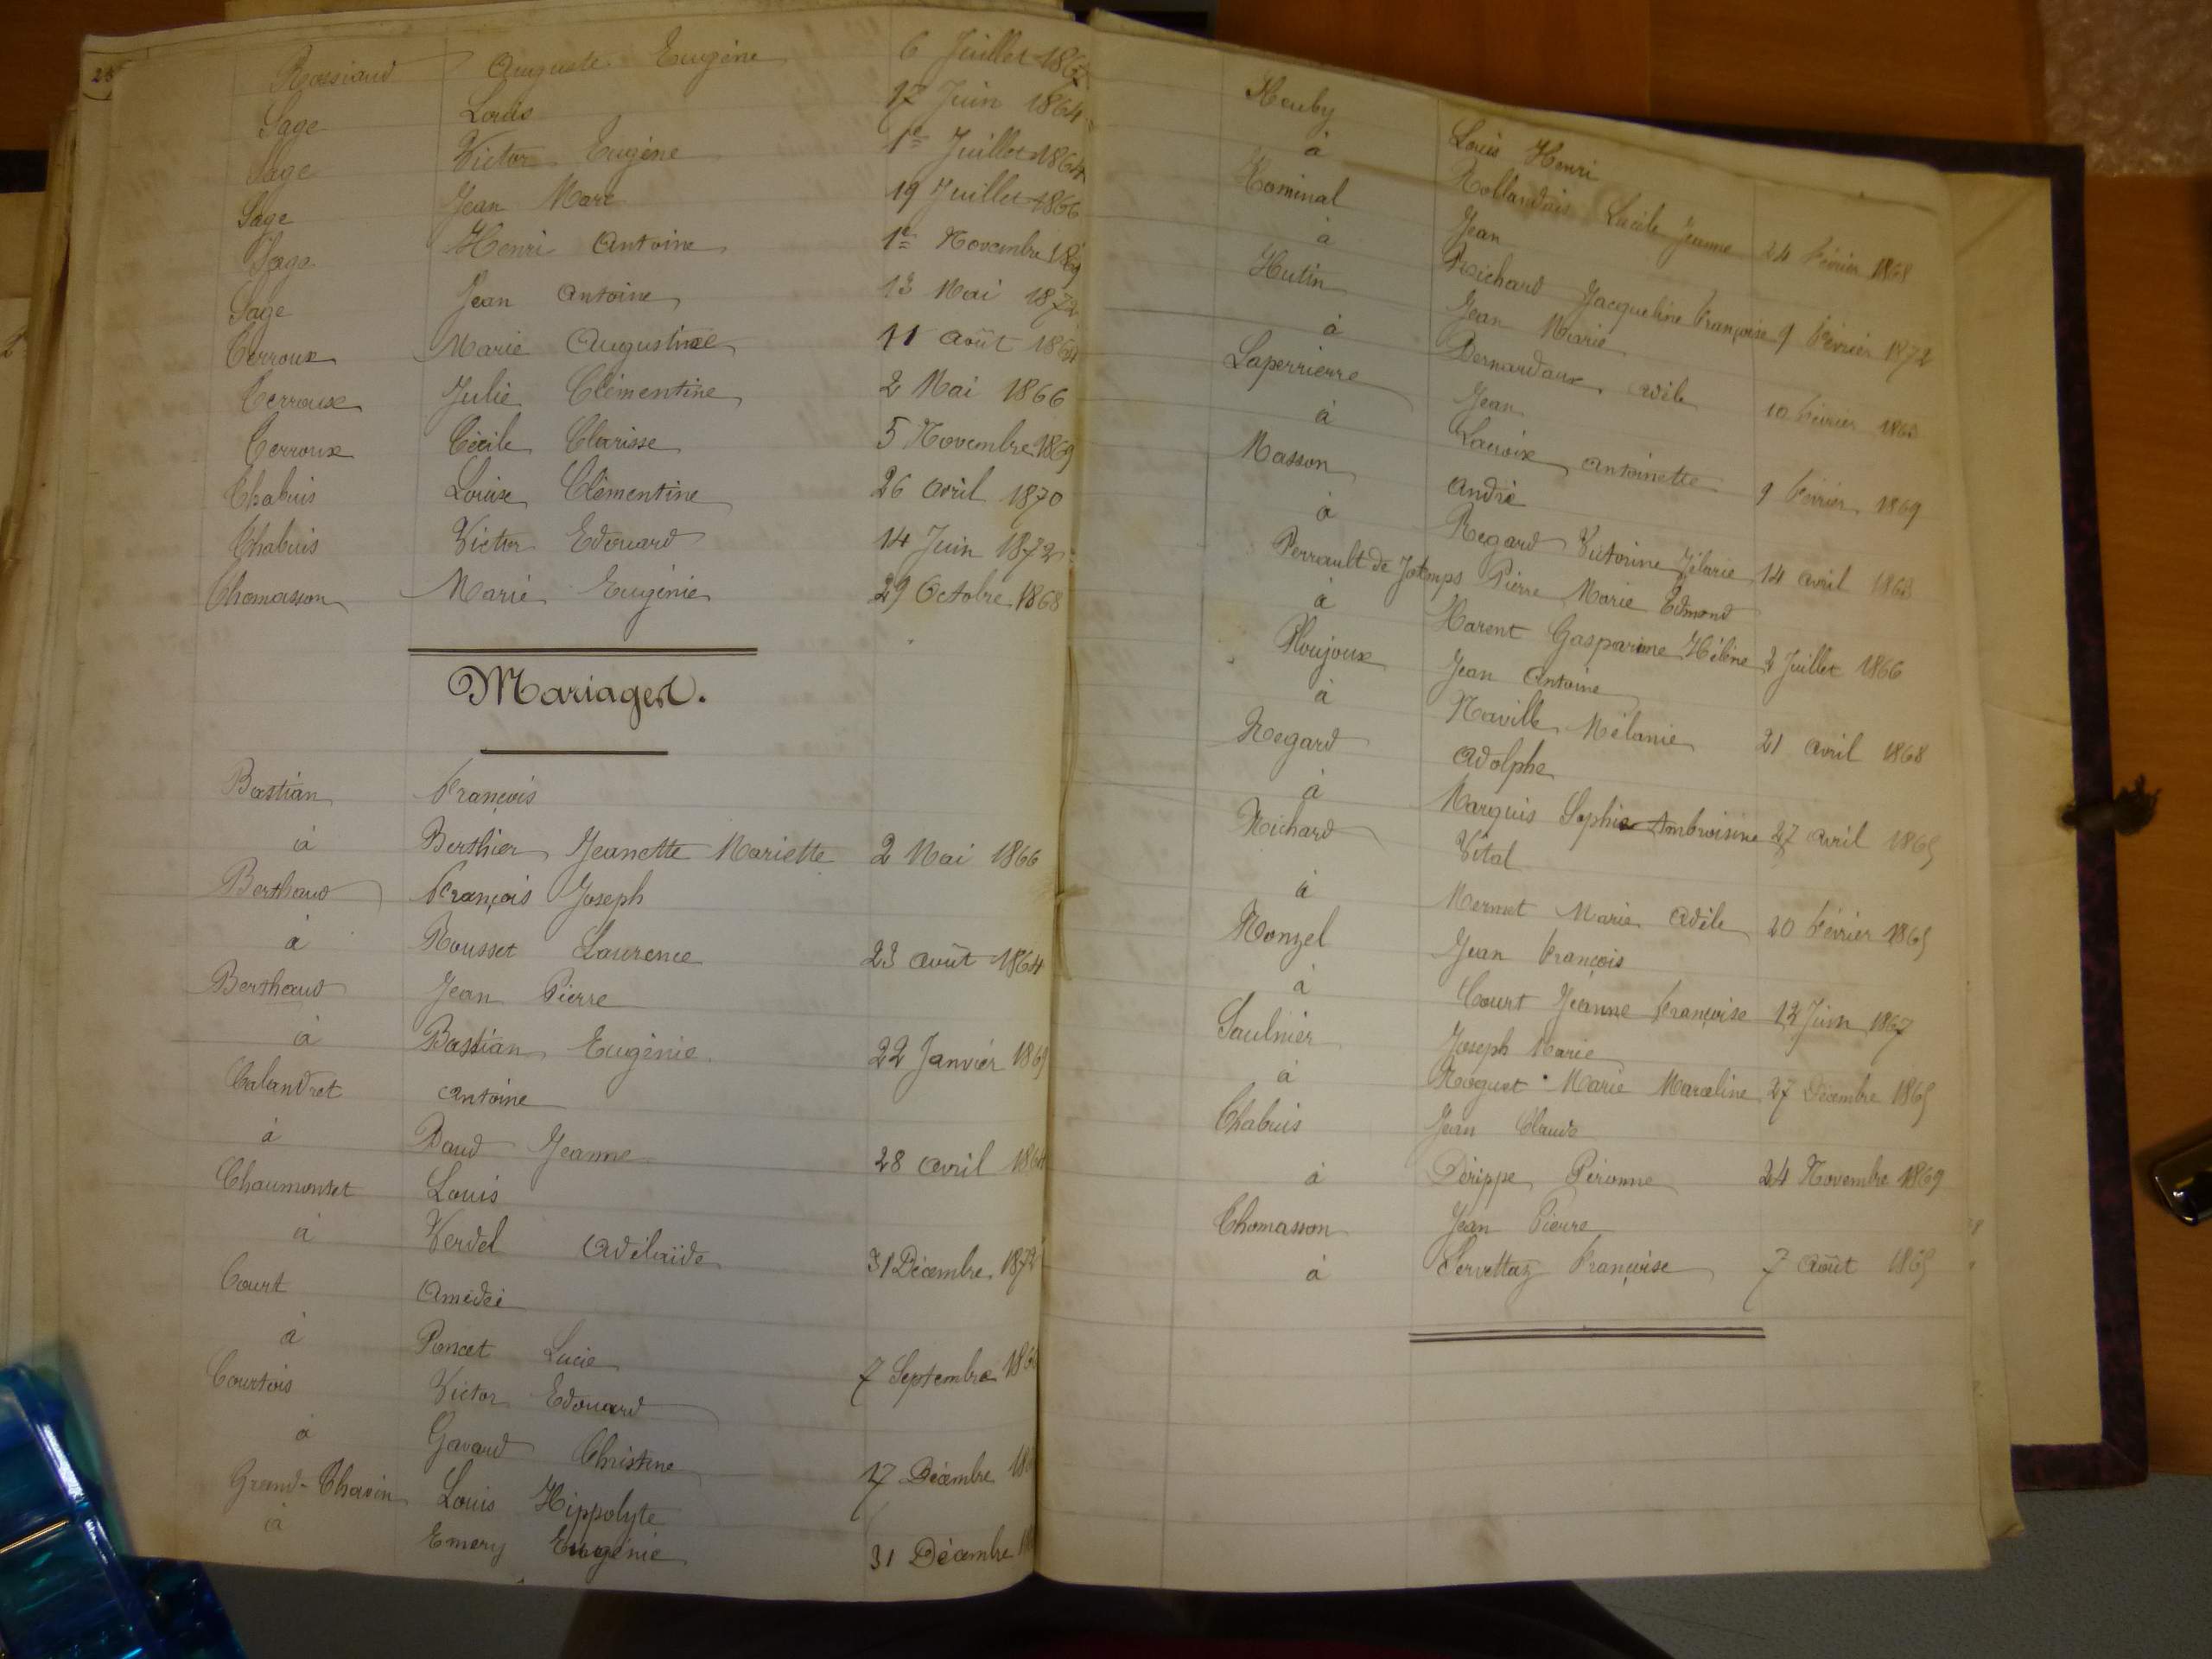 28
Rossiaud Auguste Eugène 6 Juillet 1867
Sage Louis 17 Juin 1864
Sage Victor Eugène 1er Juillet 1864
Sage Jean Marc 19 Juillet 1866
Sage Henri Antoine 1er Novembre 1869
Sage Jean Antoine 13 Mai 1872
Terroux Marie Augustine 11 Août 1864
Terroux Julie Clémentine 2 Mai 1866
Terroux Cécile Clarisse 5 Novembre 1869
Thabuis Louise Clémentine 26 Avril 1870
Thabuis Victor Edouard 14 Juin 1872
Thomasson Marie Eugénie 29 Octobre 1868
Mariages.
Bastian François
à Berthier Jeanette Mariette 2 Mai 1866
Berthaud François Joseph
à Rousset Laurence 23 Août 1864
Berthaud Jean Pierre
à Bastian Eugénie 22 Janvier
Calandret Antoine
à Daud Jeanne 28 Avril
Chaumontet Louis
à Verdel Adélaïde 31 Décembre 1872
Court Amédée
à Poncet Lucie 7 Septembre
Courtois Victor Edouard
à Gavard Christine 17 Décembre
Grand-Chavin Louis Hippolyte
à Emery Eugénie 31 Décembre
Heuby Louis Henri
à Rollandais Lucile Jeanne 24 Février 1868
Hominal Jean
à Richard Jacqueline Françoise 9 Février 1872
Hutin Jean Marie
à Bernardaux Adèle 10 Février
Laperrierre Jean
à Lacroix Antoinette 9 Février 1869
Masson André
à Regard Victorine Hilarie 14 Avril
Perrault de Jotemps Pierre Marie Edmond
à Harent Gasparine Hélène 2 Juillet 1866
Ploujoux Jean Antoine
à Naville Mélanie 21 Avril 1868
Regard Adolphe
à Marquis Sophie Ambroisine 27 Avril 1865
Richard Vital
à Mermet Marie Adèle 20 Février 1865
Ronzel Jean François
à Court Jeanne Françoise 12 Juin 1867
Saulnier Joseph Marie
à Roguet Marie Marceline 27 Décembre 1865
Thabuis Jean Claude
à Dérippe Péronne 24 Novembre 1869
Thomasson Jean Pierre
à Servettaz Françoise 7 Août 1865